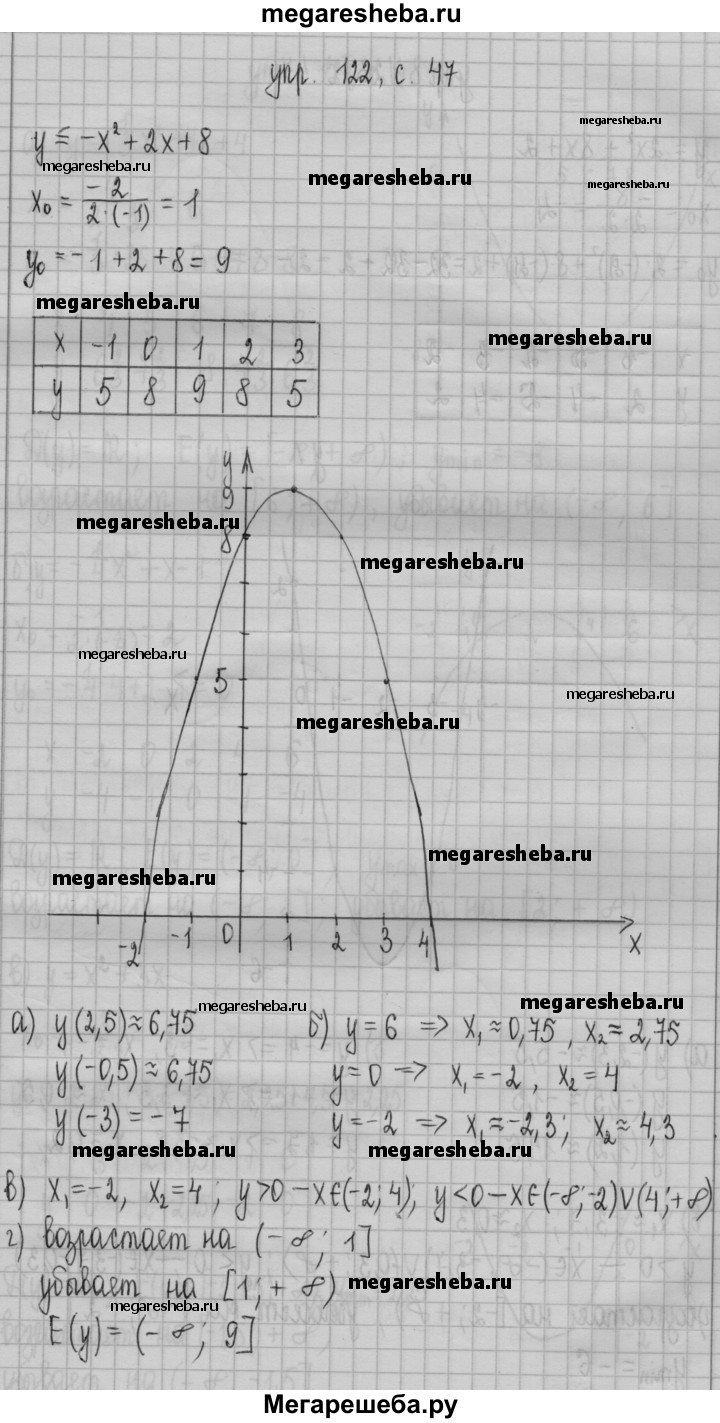 megaresheba.ru
упр. 122, с. 47
megaresheba.ru
y = -x² + 2x + 8
megaresheba.ru
megaresheba.ru
megaresheba.ru
x₀ = -2 / 2·(-1) = 1
y₀ = -1 + 2 + 8 = 9
megaresheba.ru
megaresheba.ru
x -1 0 1 2 3
y 5 8 9 8 5
y
9
megaresheba.ru
8
megaresheba.ru
megaresheba.ru
5
megaresheba.ru
megaresheba.ru
megaresheba.ru
megaresheba.ru
-2 -1 0 1 2 3 4 x
megaresheba.ru
megaresheba.ru
а) y(2,5) ≈ 6,75 б) y = 6 => x₁ ≈ 0,75 , x₂ ≈ 2,75
y(-0,5) ≈ 6,75 y = 0 => x₁ = -2 , x₂ = 4
y(-3) = -7 y = -2 => x₁ ≈ -2,3 ; x₂ ≈ 4,3
megaresheba.ru
megaresheba.ru
в) x₁ = -2, x₂ = 4 ; y > 0 – x ∈ (-2; 4); y < 0 – x ∈ (-∞; -2) ∪ (4; +∞)
г) возрастает на (-∞; 1]
убывает на [1; +∞)
megaresheba.ru
megaresheba.ru
E(y) = (-∞; 9]
Мегарешеба.ру